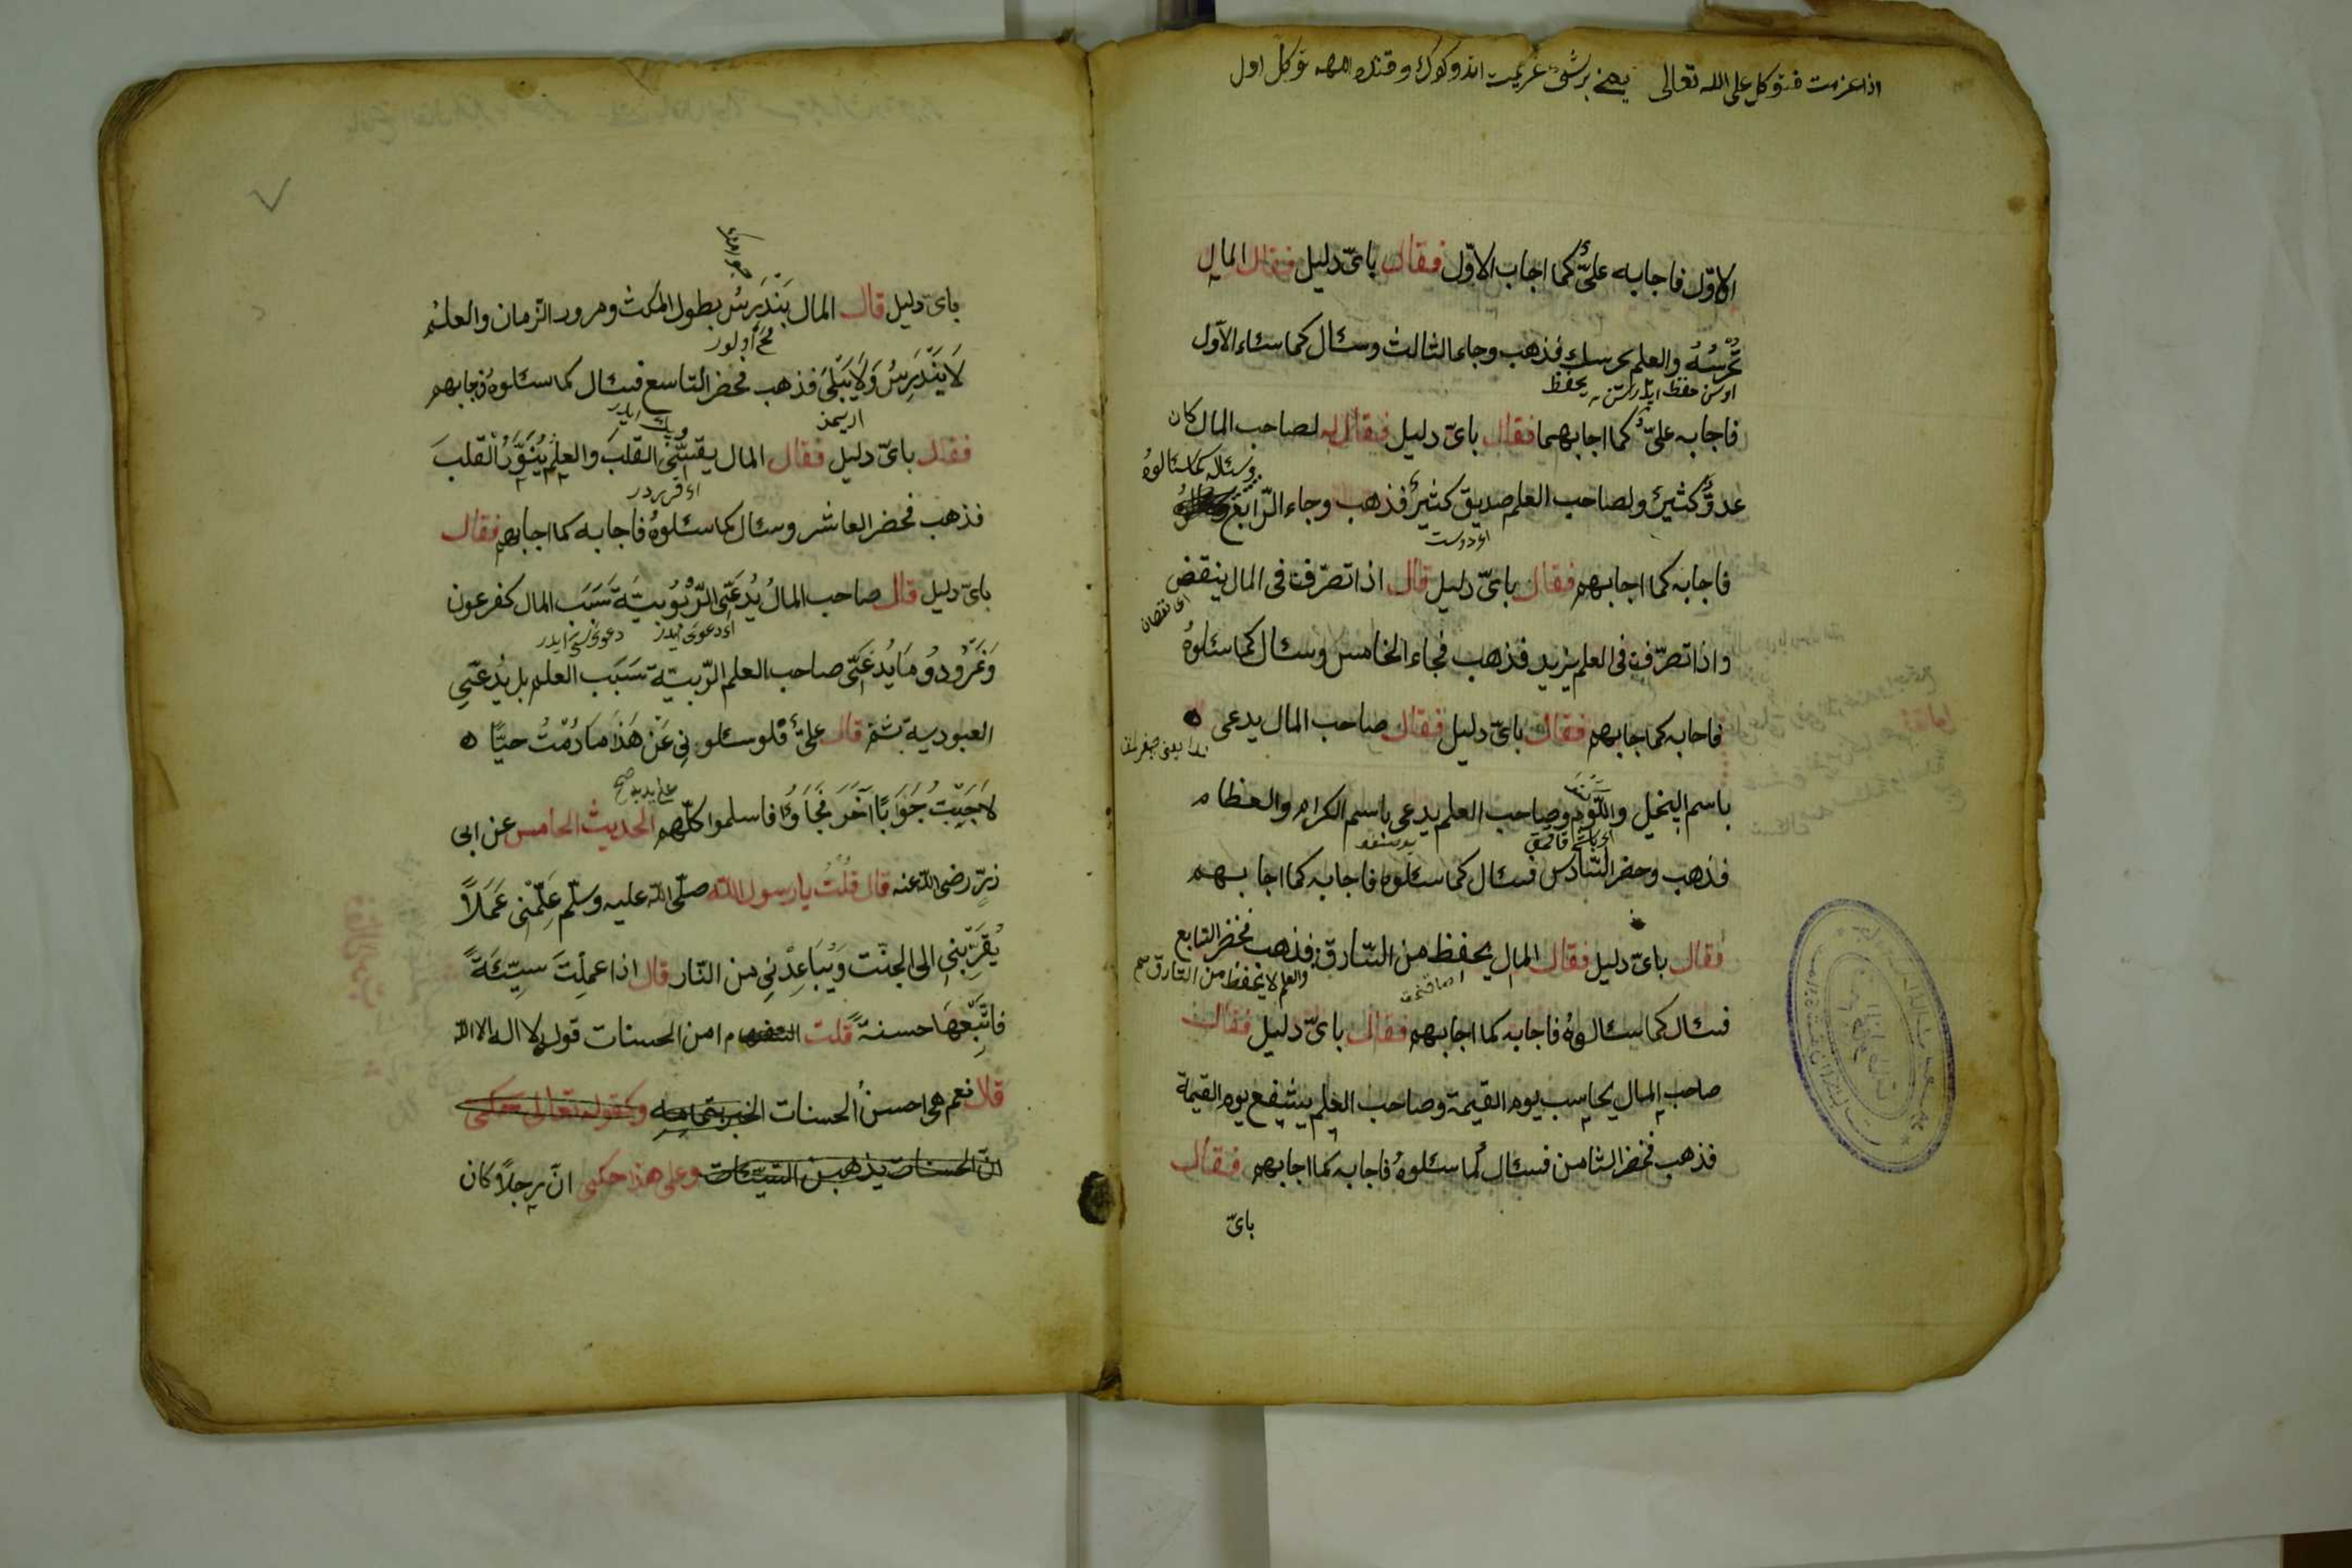 اذا عزمت فتوكل على الله تعالى يعنى برشى عزيمت اتدوكوك وقتده اللهه توكل اول
الاوّل فاجابه علىٌّ كما اجاب الاوّل فقال باىّ دليل فقال المال
تَحْرُسُهُ والعلم يحرسك فذهب وجاء الثالث وسئال كما سئاء الاول
يحفظ
فاجابه علىٌّ كما اجابهما فقال باىّ دليل فقال له لصاحب المال كان
وسئله كما سئالوهُ
عدوٌّ كثيرٌ ولصاحب العلم صديق كثيرٌ فذهب وجاء الرّابع
اى دوست
فاجابه كما اجابهم فقال باىّ دليل قال اذا تصرّفت فى المال ينقض
اى نقصان
واذا تصرّفت فى العلم يزيد فذهب فجاء الخامس وسئال كما سئلوهُ
فاجابه كما جابهم فقال باىّ دليل فقال صاحب المال يدعى
باسم البخيل واللّوم وصاحب العلم يدعى باسم الكرام والعظام
فذهب وحضر السّادس فسئال كما سئلوه فاجابه كما اجابهم
فقال باىّ دليل فقال المال يحفظ من السّارق فذهب فحضر السّابع
والعلم لا يحفظ من السّارق صح
فسئال كما سئالوهُ فاجابه كما اجابهم فقال باىّ دليل فقال
صاحب المال يحاسب يوم القيمة وصاحب العلم يشفع يوم القيمة
فذهب فحضر الثامن فسئال كما سئلوهُ فاجابه كما اجابهم فقال
باىّ
باىّ دليل قال المال يَنْدَرِسُ بطول المكث ومرور الزمان والعلمُ
لَا يَنْدَرِسُ وَلَا يَبْلَىَ فذهب فحضر التاسع فسئال كما سئلوهُ فجابهم
فقال باىّ دليل فقال المال يقسّى القلبَ والعلم يُنَوِّرُ القلبَ
فذهب فحضر العاشر وسئال كما سئلوهُ فاجابه كما اجابهم فقال
باىّ دليل قال صاحب المالُ يُدعَّى الرّبُوُبيتَة سَبَب المال كفرعون
اى دعوى ايدر
وَنَمْرُود وُمَا يُدعَّى صاحب العلم الرّبيّة سَبَب العلم بل يُدعَّى
العبودية ثم قال علىٌّ فلو سئلونى عَنْ هَذَا مَا دُمْتُ حيًّا
لَاَجَبْتُ جَوَابًا آخَرَ فجَاوُا فاسلموا كلّهم الحديث الخامس عن ابى
على يديه صح
ذرٍّ رضى الله عنه قال قُلْتُ يا رسول الله صلّى الله عليه وسلّم عَلِّمْنى عَمَلاً
يُقَرِّبْنِى الى الجنّت وَيُبَاعِدْنِى من النّار قال اذا عملْتَ سيِّئَةً
فاتَّبِعْهَا حسنةً قلت امن الحسنات قول لا اله الا الله
قال نعم هى احسنُ الحسنات الخبر بتمامه وكقوله تعالى حكى
انّ الحسنات يذهبن السّيّئات وعلى هذا حكى انّ رجلاً كان